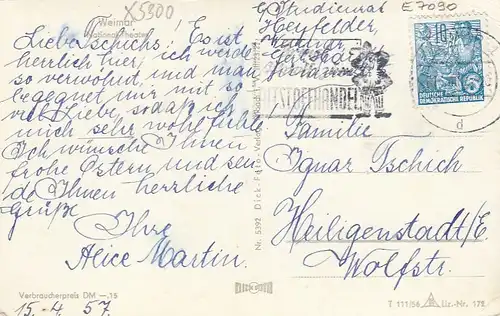 X5900
E 7090
Weimar
Nationaltheater
Liebe Tschichs! Es ist
herrlich hier, ich werde
so verwöhnt und man
begegnet mir mit so
viel Liebe, sodaß ich
mich sehr wohl fühle.
Ich wünsche Ihnen
frohe Ostern und sen-
de Ihnen herzliche
Grüße
Ihre
Alice Martin.
Verbraucherpreis DM —.15
15. 4. 57.
Studienrat
Heyfelder,
Weimar
DEUTSCHE
DEMOKRATISCHE REPUBLIK
6
d
Familie
Ignaz Tschich
Heiligenstadt/E.
Wolfstr.
Nr. 5392
T 111/56 Liz.-Nr. 175